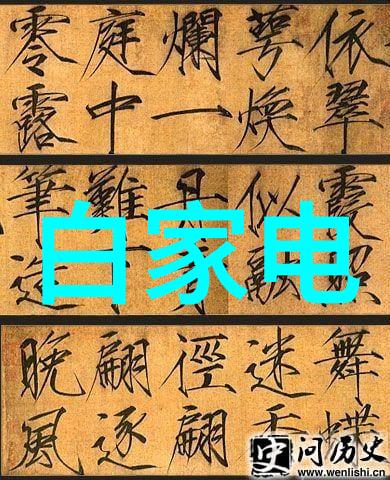 依翠
萼煥
爛一
庭中
零露
霞照
似融
丹青
難
筆造
白家电
舞蝶
迷香
徑翩
翩逐
晚風
问历史
www.wenlishi.cn